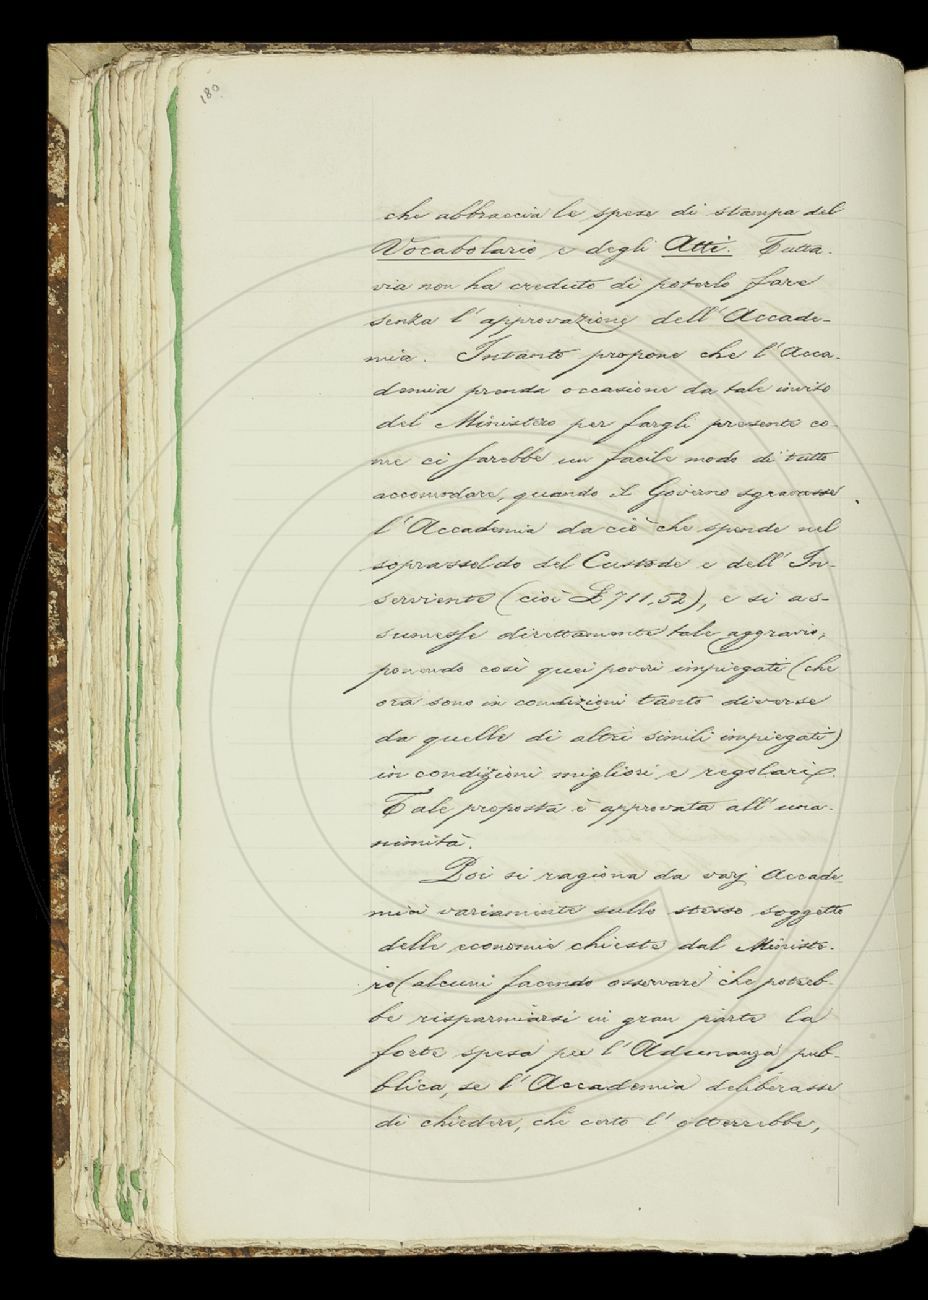 180
che abbraccia le spese di stampa del
Vocabolario e degli Atti. Tutta-
via non ha creduto di poterlo fare
senza l'approvazione dell'Accade-
mia. Intanto propone che l'Acca-
demia prenda occasione da tale invito
del Ministero per fargli presente co-
me ci sarebbe un facile modo di tutto
accomodare, quando il Governo sgravasse
l'Accademia da ciò che spende nel
soprassoldo del Custode e dell'In-
serviente (cioè £ 711,52), e si as-
sumesse direttamente tale aggravio,
ponendo così quei poveri impiegati (che
ora sono in condizioni tanto diverse
da quelle di altri simili impiegati)
in condizioni migliori e regolari.
Tale proposta è approvata all'una-
nimità.
Poi si ragiona da varj Accade-
mici variamente sullo stesso soggetto
delle economie chieste dal Ministe-
ro (alcuni facendo osservare che potreb-
be risparmiarsi in gran parte la
forte spesa per l'Adunanza pub-
blica, se l'Accademia deliberasse
di chiedere, chè certo l'otterrebbe,